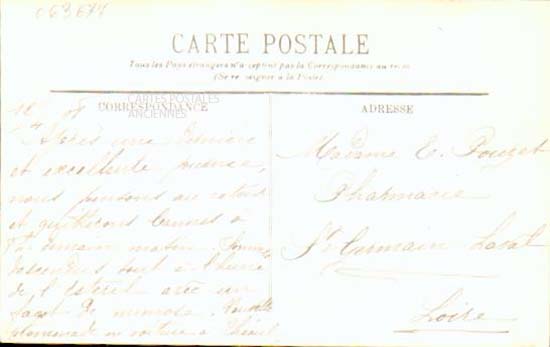 063677
CARTE POSTALE
Tous les Pays étrangers n'acceptent pas la Correspondance au recto
(Se renseigner à la Poste)
CORRESPONDANCE
CARTES POSTALES
ANCIENNES
ADRESSE
Après une dernière
et excellente
nous pensons au retour
et quitterons Cannes à
demain matin. Sommes
descendus tout à l'heure
de l'Esterel avec un
de mimosa.
promenade en voiture à
Madame E. Pouzet
Pharmacie
St Germain Laval
Loire